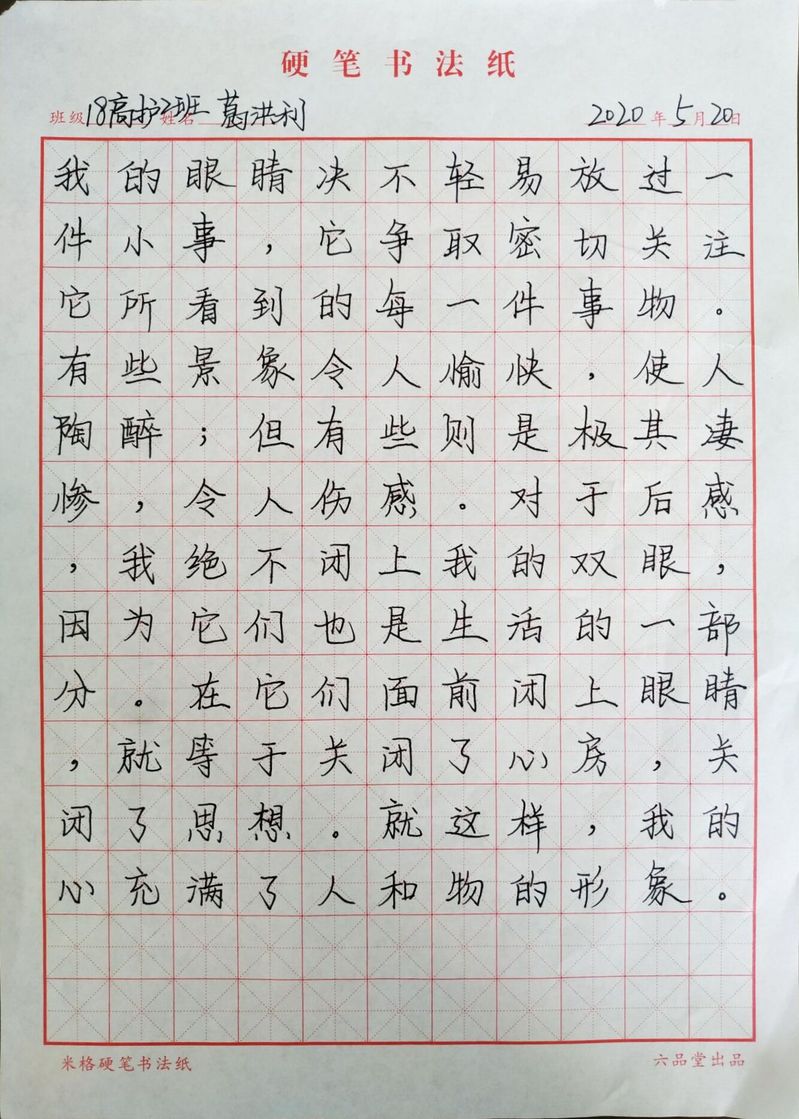 硬笔书法纸
班级 18高护2班 姓名 葛洪利 2020年5月20日
我的眼睛决不轻易放过一
件小事，它争取密切关注
它所看到的每一件事物。
有些景象令人愉快，使人
陶醉；但有些则是极其凄
惨，令人伤感。对于后感
，我绝不闭上我的双眼，
因为它们也是生活的一部
分。在它们面前闭上眼睛
，就等于关闭了心房，关
闭了思想。就这样，我的
心充满了人和物的形象。
米格硬笔书法纸 六品堂出品